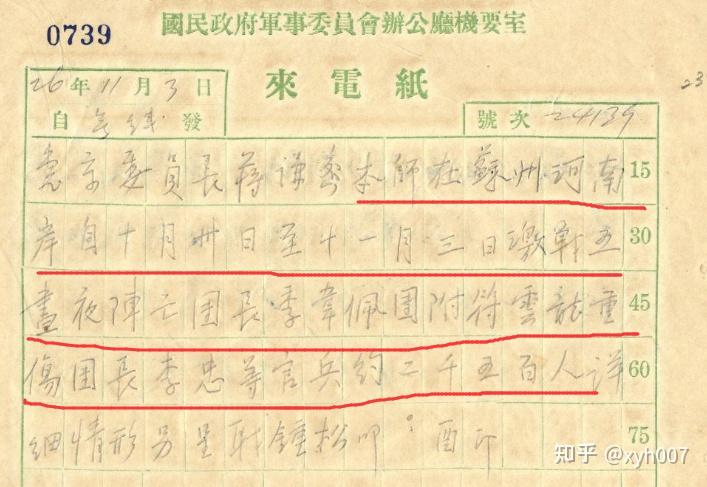 0739
國民政府軍事委員會辦公廳機要室
26年11月3日
來電紙
23
自無線發
號次 24139
急京委員長蔣謙密本師在蘇州河南 15
岸自十月卅日至十一月三日激戰五 30
晝夜陣亡團長季韋佩團附符雲龍重 45
傷團長李忠等官兵約二千五百人詳 60
細情形另呈職鍾松叩。酉印 75
知乎 @xyh007